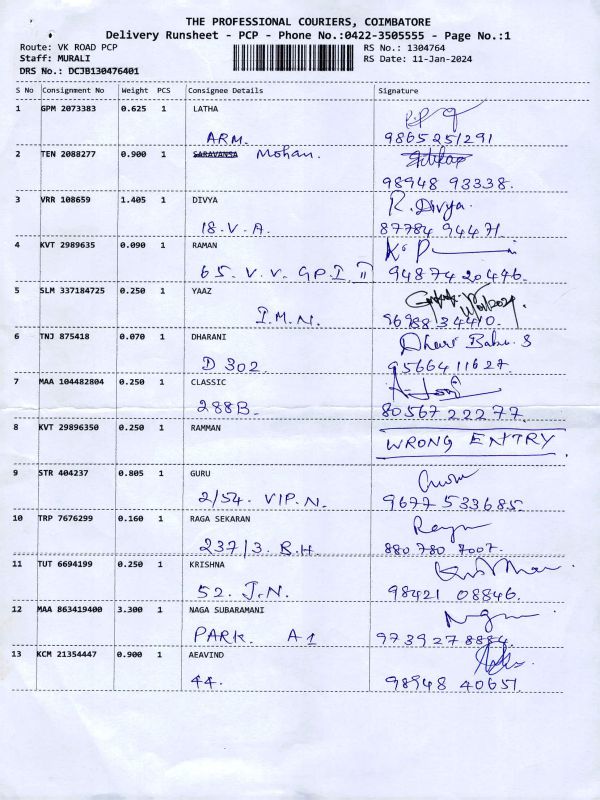 THE PROFESSIONAL COURIERS, COIMBATORE
Delivery Runsheet - PCP - Phone No.:0422-3505555 - Page No.:1
Route: VK ROAD PCP RS No.: 1304764
Staff: MURALI RS Date: 11-Jan-2024
DRS No.: DCJB130476401
S No Consignment No Weight PCS Consignee Details Signature
1 GPM 2073383 0.625 1 LATHA
ARM. 98652 51291
2 TEN 2088277 0.900 1 SARAVANSA Mohan.
98948 93338.
3 VRR 108659 1.405 1 DIVYA R. Divya.
18. V. A. 87784 94471.
4 KVT 2989635 0.090 1 RAMAN
65. V. V. GP. I. II 94874 20446.
5 SLM 337184725 0.250 1 YAAZ
I.M.N. 96988 34410.
6 TNJ 875418 0.070 1 DHARANI Dhari Babu. S
D 302. 95664 11627.
7 MAA 104482804 0.250 1 CLASSIC
288B. 80567 22277.
8 KVT 29896350 0.250 1 RAMMAN WRONG ENTRY.
9 STR 404237 0.805 1 GURU
2/54. VIP. N. 9677 533685.
10 TRP 7676299 0.160 1 RAGA SEKARAN
237/3. B.H. 880 780 7007.
11 TUT 6694199 0.250 1 KRISHNA
52. J.N. 98421 08846.
12 MAA 863419400 3.300 1 NAGA SUBARAMANI
PARK. A1 9739278884.
13 KCM 21354447 0.900 1 AEAVIND
44. 98948 40651.